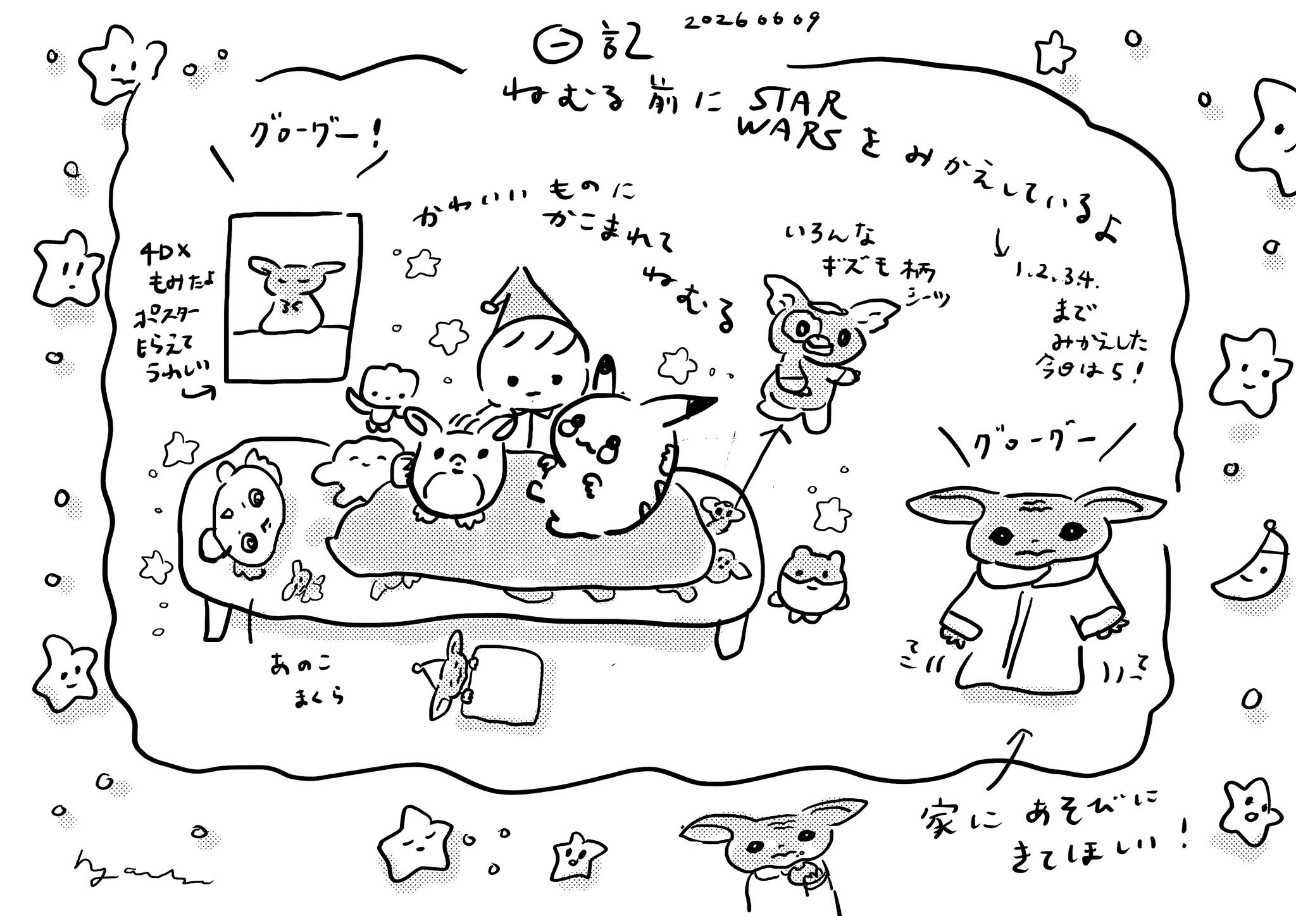 日記
20260609
ねむる前に STAR
WARSを みかえしているよ
グローグー!
かわいい ものに
かこまれて
ねむる
4DX
もみたよ
ポスター
もらえて
うれしい
いろんな
ギズモ 柄
シーツ
1.2.3.4.
まで
みかえした
今日は5!
グローグー
てこ
てこ
あのこ
まくら
家に あそびに
きてほしい!